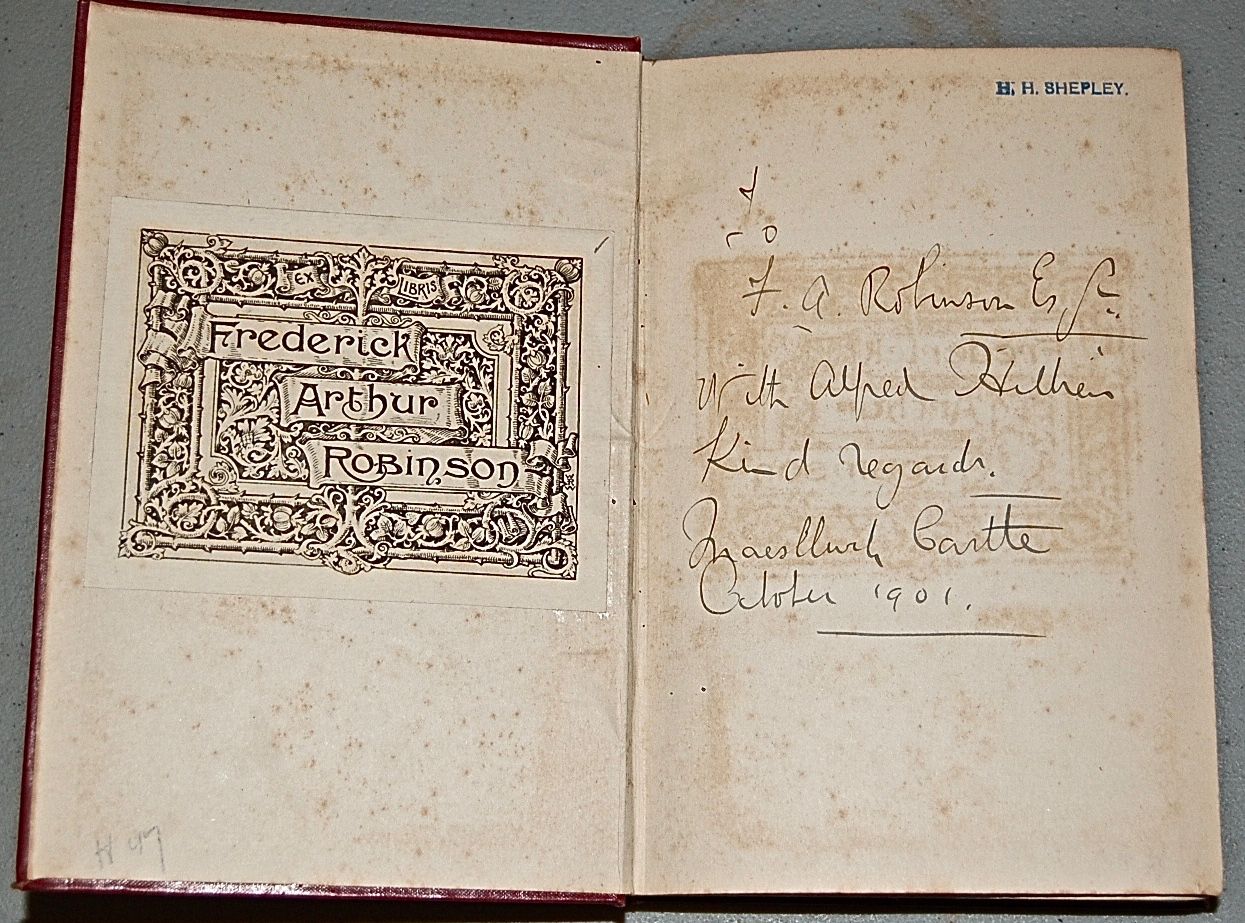 EX LIBRIS
Frederick
Arthur
Robinson
H. H. SHEPLEY.
To
F. A. Robinson Esqr.
With Alfred Hillier's
Kind regards.
Maesllwch Castle
October 1901.